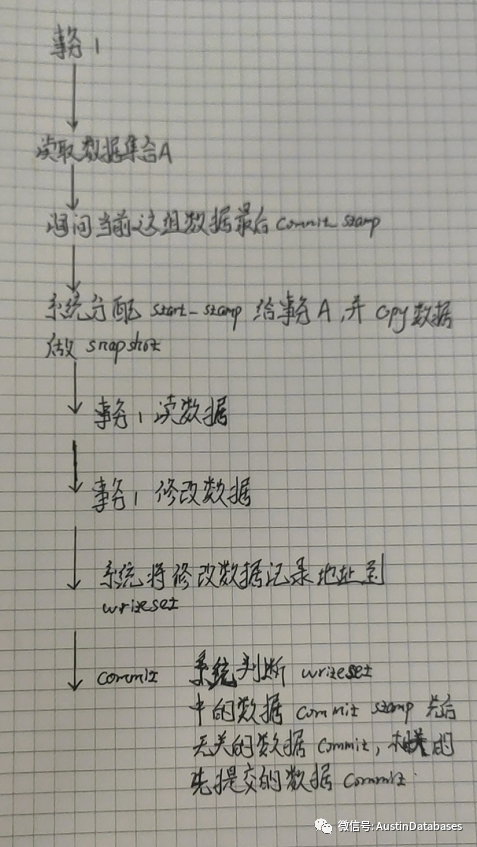 事务1
读取数据集合A
询问当前这组数据最后 commit stamp
系统分配 start-stamp 给事务A,并 copy数据
做 snapshot
事务1 读数据
事务1 修改数据
系统将修改数据记录地址到
writeset
commit 系统判断 writeset
中的数据 commit stamp 先后
无关的数据 commit, 相关的
先提交的数据 commit.
微信号: AustinDatabases